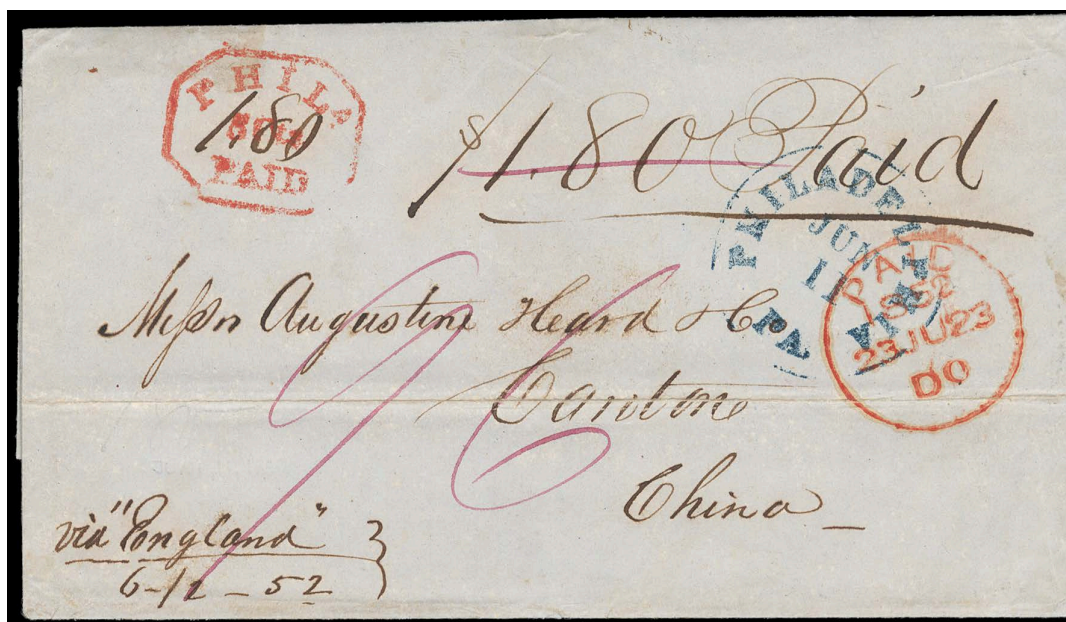 PHILA
PAID
1.80
$1.80 Paid
PHILADELPHIA
JUN
11
PA
PAID
1852
23JU23
DO
Messrs Augustine Heard & Co
Canton
China
96
via "England"
6-12-52